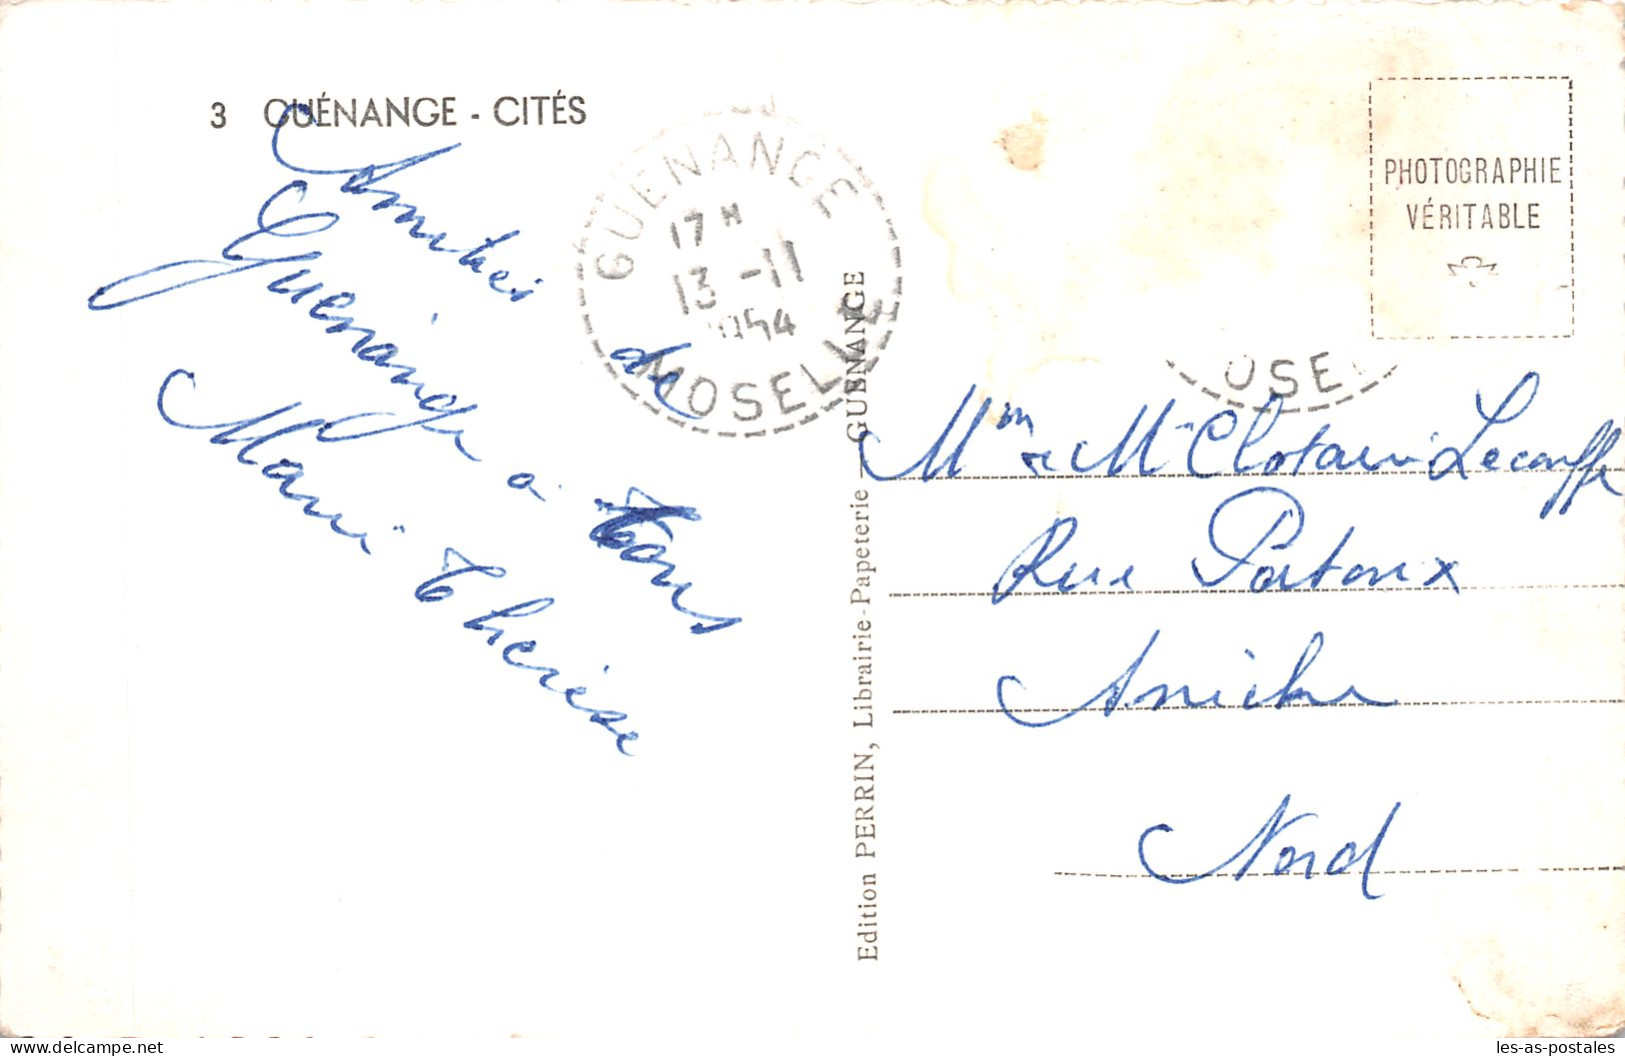 3 GUÉNANGE - CITÉS
Amitiés de
Guénange à tous
Marie Thérèse
GUENANGE
17 H
13 -11
1954
MOSELLE
Edition PERRIN, Librairie-Papeterie - GUENANGE
PHOTOGRAPHIE
VÉRITABLE
Mm et Mr Clotaire Lecouffe
Rue Patoux
Aniche
Nord
les-as-postales